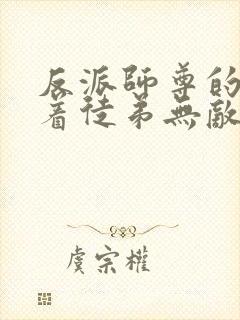 反派師尊的
着徒弟無敵
虞宗權